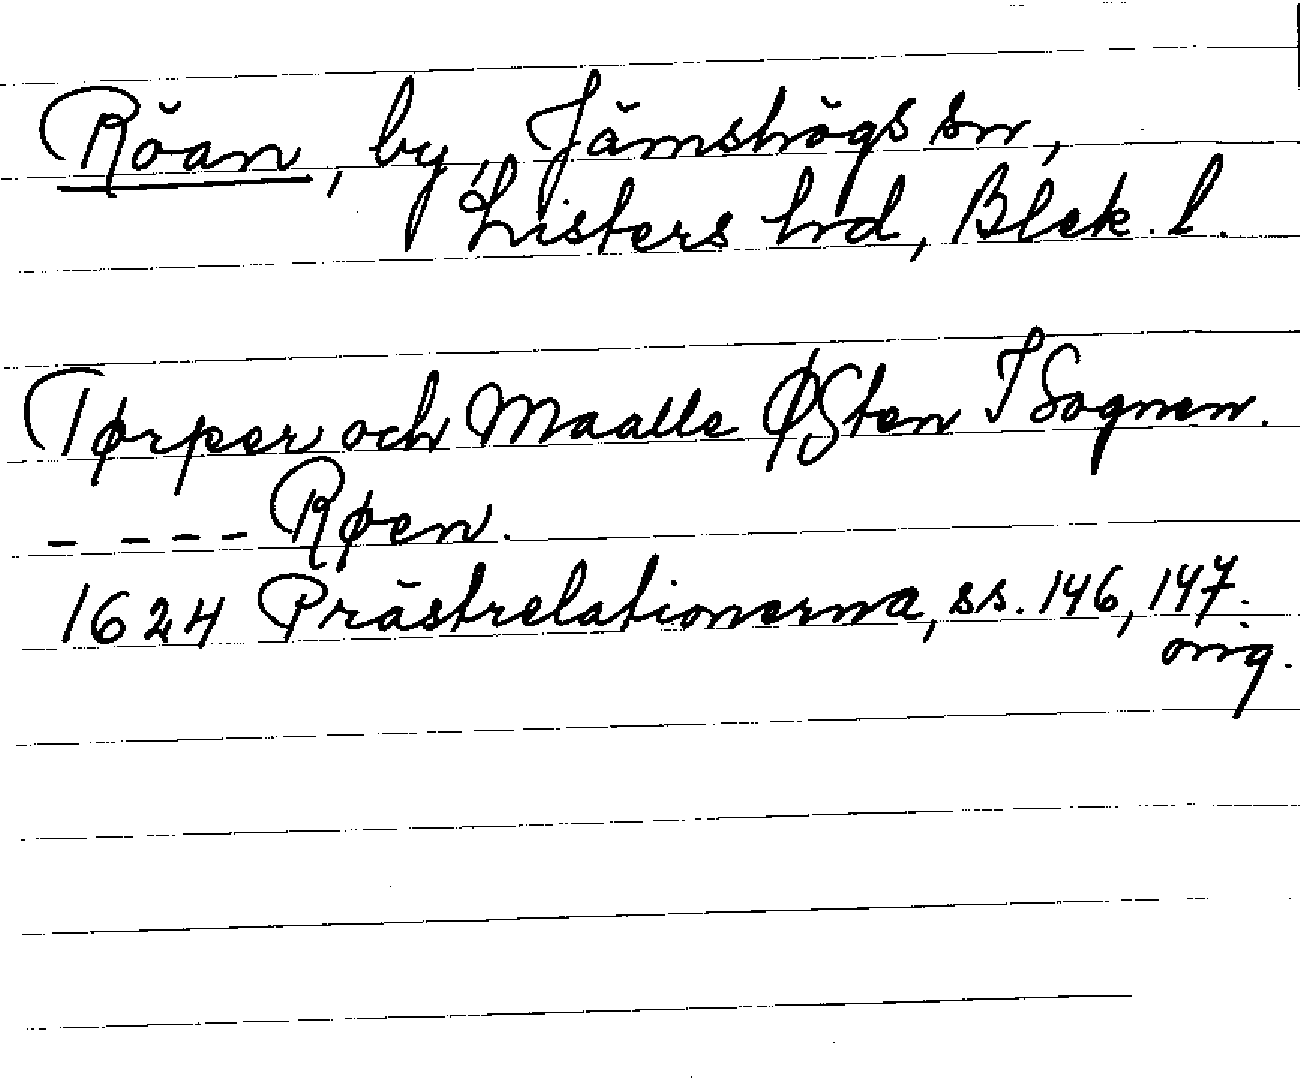 Röan, by, Jämshögs sn,
Listers hd, Blek. l.
Tørper och Maalle ØSten I Sognen.
- - - - Røen.
1624 Prästrelationerna, ss. 146, 147.
orig.